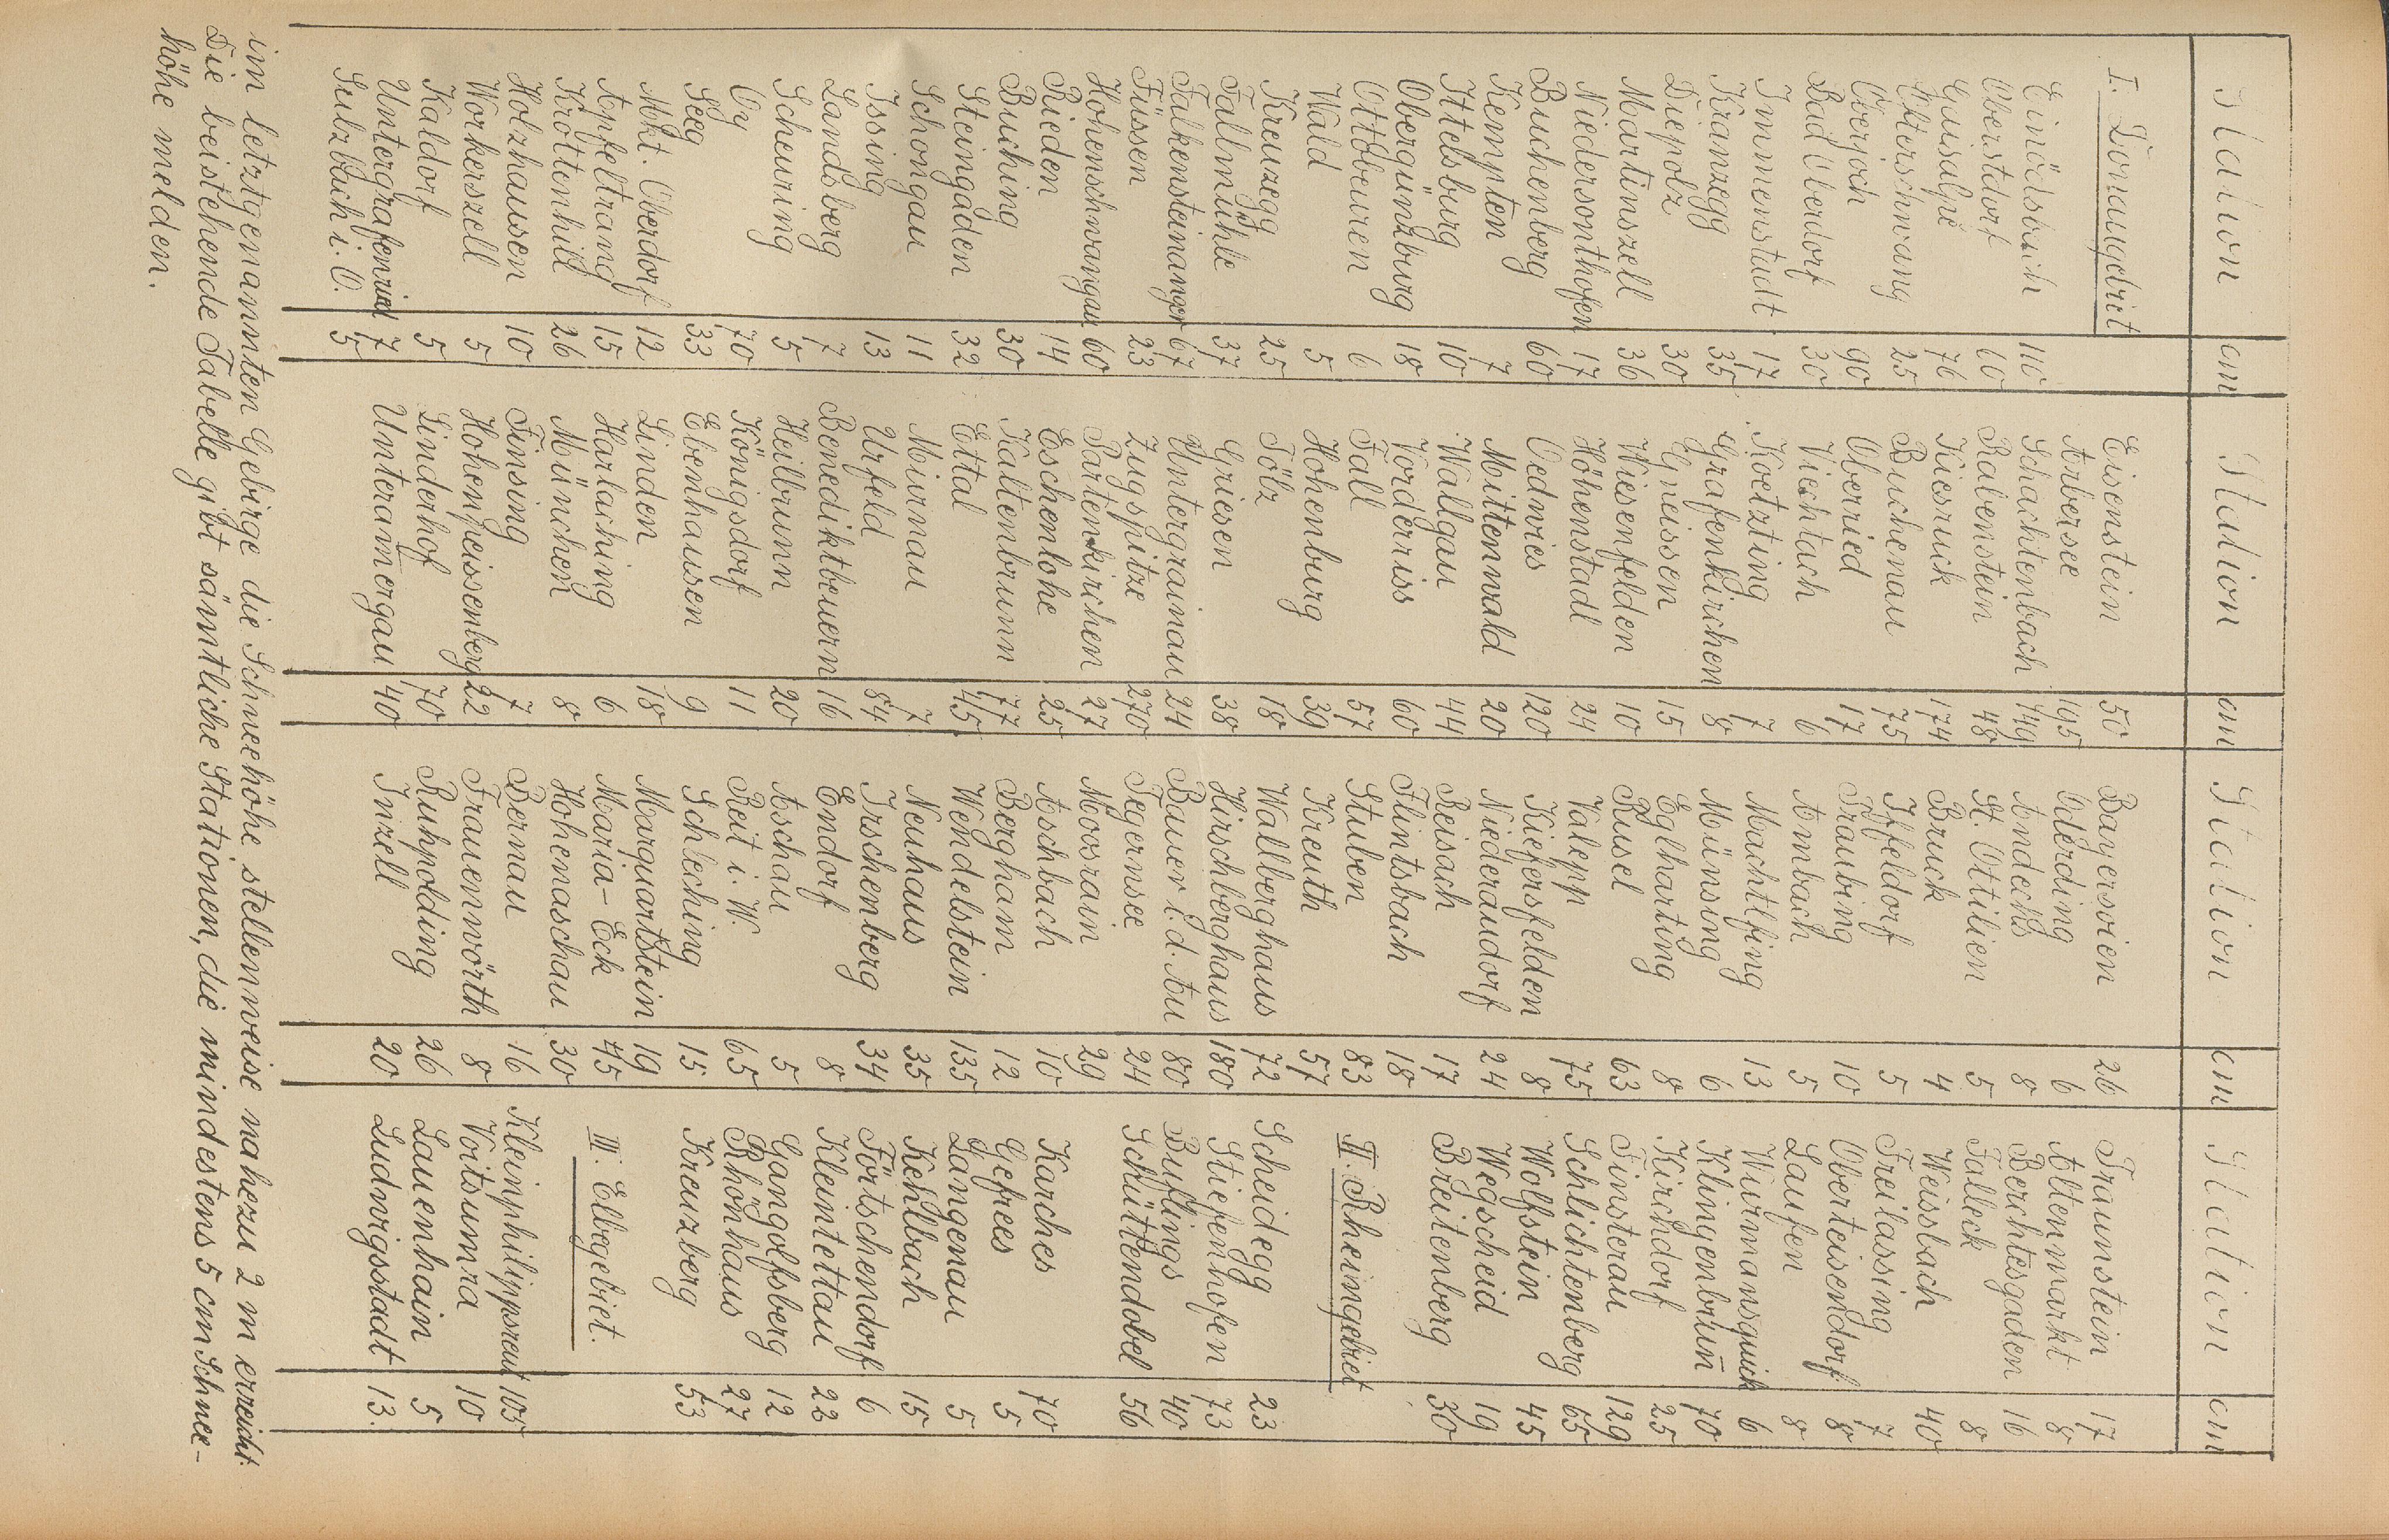 Station cm Station cm Station cm Station cm
I. Donaugebiet
Einödsbach 110
Oberstdorf 60
Gaisalpe 76
Balderschwang 25
Oberjoch 90
Bad Oberdorf 30
Immenstadt 17
Kranzegg 35
Diepolz 30
Martinszell 36
Niedersonthofen 17
Buchenberg 60
Kempten 7
Ittelsburg 10
Obergünzburg 18
Ottobeuren 6
Wald 5
Kreuzegg 25
Fallmühle 37
Falkensteinanger 67
Füssen 23
Hohenschwangau 60
Rieden 14
Buching 30
Steingaden 32
Schongau 11
Issing 13
Landsberg 7
Scheuring 5
Oy 70
Seeg 33
Mkt. Oberdorf 12
Apfeltrang 15
Krottenhill 26
Holzhausen 10
Workerszell 5
Kaldorf 5
Untergrafenried 7
Sulzbach i. O. 5
Eisenstein 50
Arbersee 195
Schachtenbach 149
Rabenstein 48
Kiesruck 174
Buchenau 75
Oberried 17
Viechtach 6
Koetzting 7
Grafenkirchen 8
Gneissen 15
Wiesenfelden 10
Höhenstadl 24
Oedwies 120
Mittenwald 20
Wallgau 44
Vorderriss 60
Fall 57
Hohenburg 39
Tölz 18
Griesen 38
Untergrainau 24
Zugspitze 270
Partenkirchen 27
Eschenlohe 25
Kaltenbrunn 77
Ettal 45
Murnau 7
Urfeld 84
Benediktbeuern 16
Heilbrunn 20
Königsdorf 11
Ebenhausen 9
Linden 18
Harlaching 6
München 8
Finsing 7
Hohenpeissenberg 22
Linderhof 70
Unterammergau 40
Bayersoien 26
Oderding 6
Andechs 8
St. Ottilien 5
Bruck 4
Iffeldorf 5
Traubing 10
Ambach 5
Machtlfing 13
Münsing 6
Eglharting 8
Rusel 63
Valepp 75
Kiefersfelden 8
Niederaudorf 24
Reisach 17
Flintsbach 18
Stuben 83
Kreuth 57
Wallberghaus 72
Hirschberghaus 180
Bauer i. d. Au 80
Tegernsee 24
Moosrain 29
Aschbach 10
Bergham 12
Wendelstein 135
Neuhaus 35
Irschenberg 34
Endorf 8
Aschau 5
Reit i. W. 65
Schleching 15
Marquartstein 19
Maria-Eck 45
Hohenaschau 30
Bernau 16
Frauenwörth 8
Ruhpolding 26
Inzell 20
Traunstein 17
Altenmarkt 8
Berchtesgaden 16
Falleck 8
Weissbach 40
Freilassing 7
Oberteisendorf 8
Laufen 8
Wurmansquick 6
Klingenbrun̄ 70
Kirchdorf 25
Finsterau 129
Schlichtenberg 65
Wolfstein 45
Wegscheid 19
Breitenberg 30
II. Rheingebiet
Scheidegg 23
Stiefenhofen 73
Buflings 40
Schüttendobel 56
Karches 70
Gefrees 5
Langenau 5
Kehlbach 15
Förtschendorf 6
Kleintettau 22
Gangolfsberg 12
Rhönhaus 27
Kreuzberg 53
III. Elbegebiet.
Kleinphilippsreut 105
Voitsumra 10
Lauenhain 5
Ludwigsstadt 13.
im letztgenannten Gebirge die Schneehöhe stellenweise nahezu 2 m erreicht.
Die beistehende Tabelle gibt sämtliche Stationen, die mindestens 5 cm Schnee-
höhe melden.